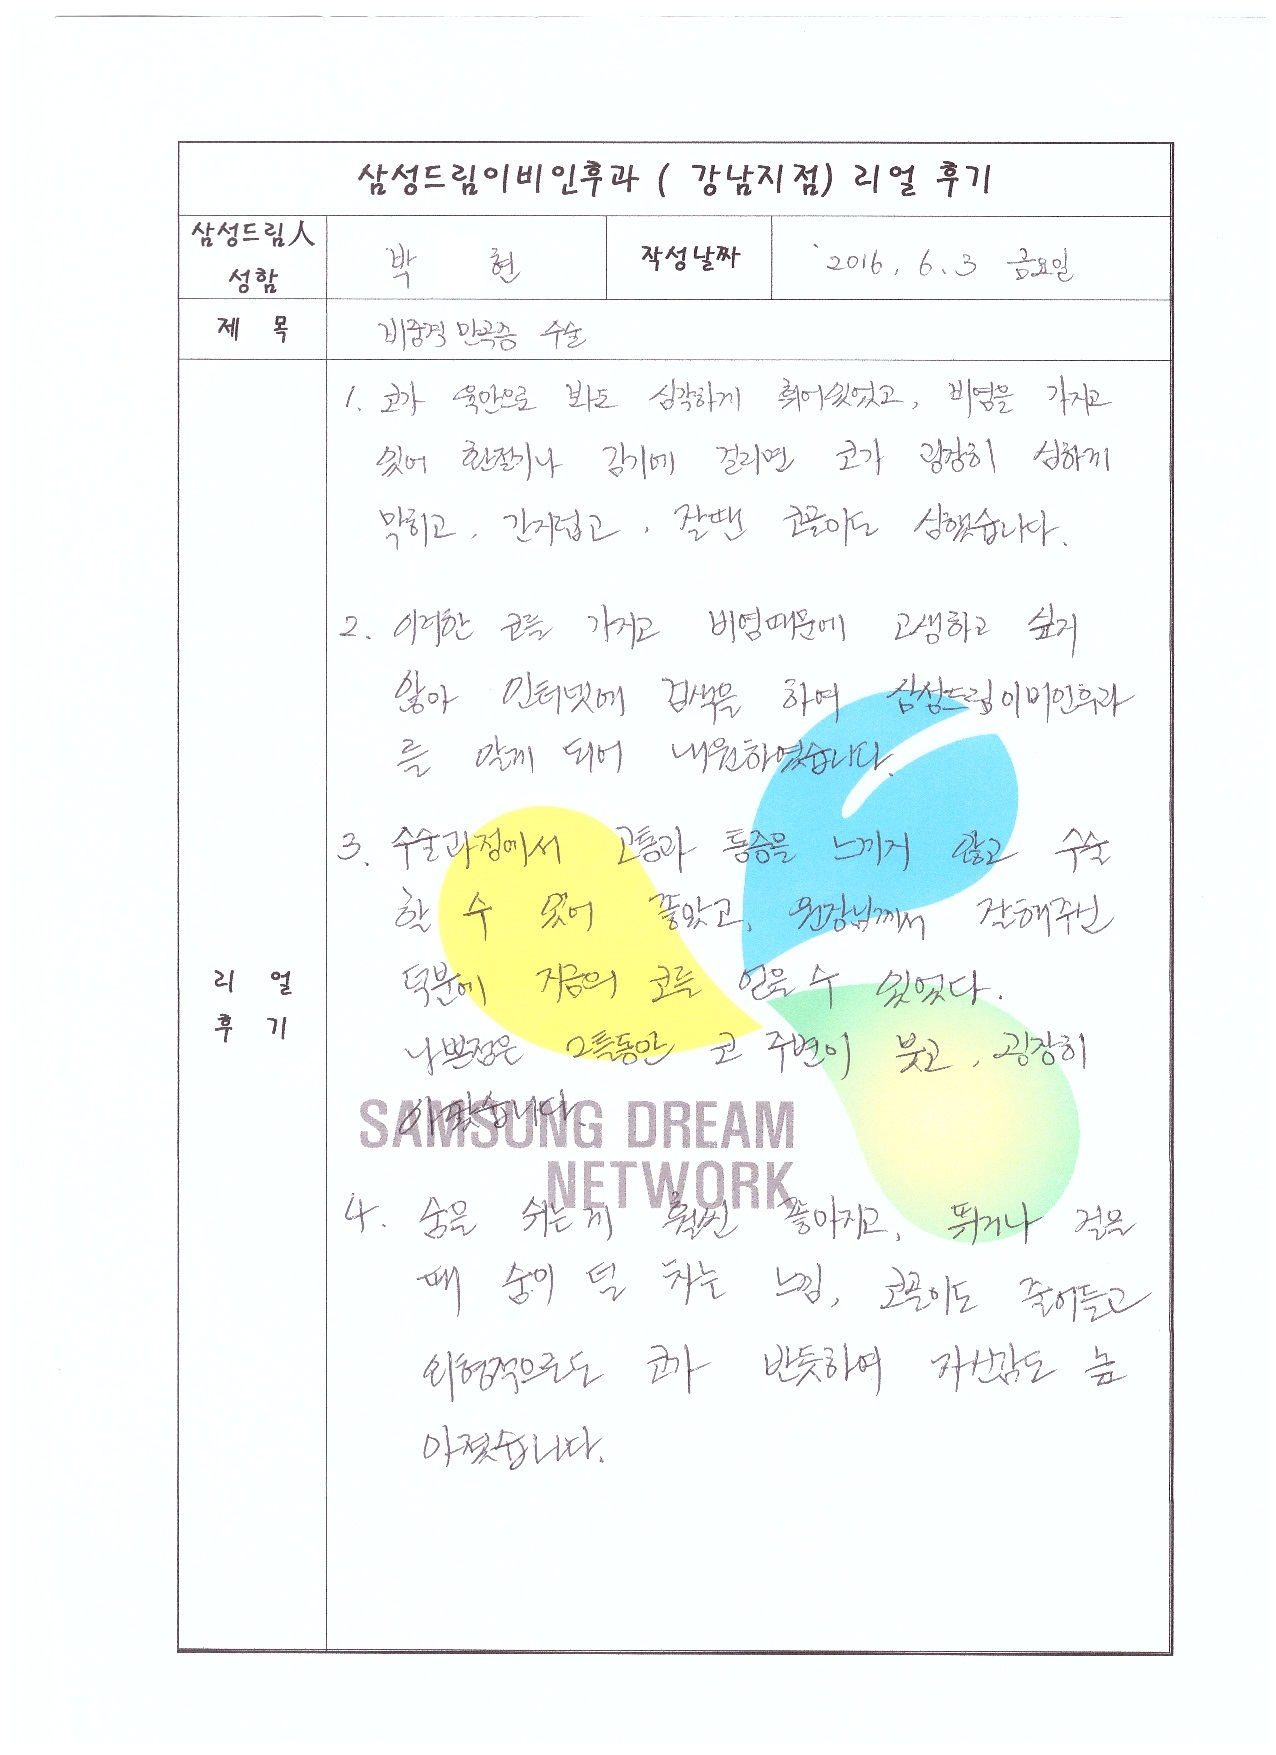 삼성드림이비인후과 ( 강남지점) 리얼 후기
삼성드림人 성함
박 현
작성날짜
2016. 6. 3 금요일
제 목
비중격 만곡증 수술
리 얼 후 기
1. 코가 육안으로 봐도 심각하게 휘어있었고, 비염을 가지고
있어 환절기나 감기에 걸리면 코가 굉장히 심하게
막히고, 간지럽고, 잘땐 코골이도 심했습니다.
2. 이러한 코를 가지고 비염때문에 고생하고 싶지
않아 인터넷에 검색을 하여 삼성드림이비인후과
를 알게 되어 내원하였습니다.
3. 수술과정에서 고통과 통증을 느끼지 않고 수술
할 수 있어 좋았고, 원장님께서 잘해주신
덕분에 지금의 코를 얻을 수 있었다.
나쁜점은 2틀동안 코 주변이 붓고, 굉장히
아팠습니다.
SAMSUNG DREAM
NETWORK
4. 숨을 쉬는게 훨씬 좋아지고, 뛰거나 걸을
때 숨이 덜 차는 느낌, 코골이도 줄어들고
외형적으로도 코가 반듯하여 자신감도 높
아졌습니다.